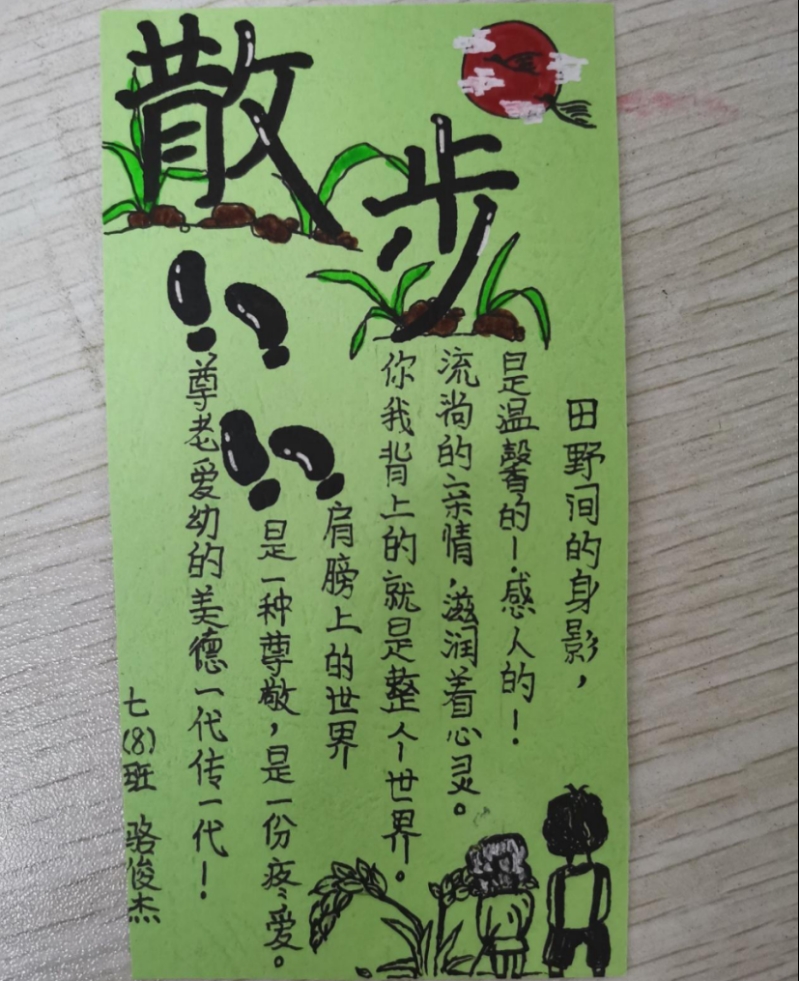 散步
田野间的身影，
是温馨的！感人的！
流淌的亲情，滋润着心灵。
你我背上的就是整个世界。
肩膀上的世界
是一种尊敬，是一份疼爱。
尊老爱幼的美德一代传一代！
七(8)班 骆俊杰